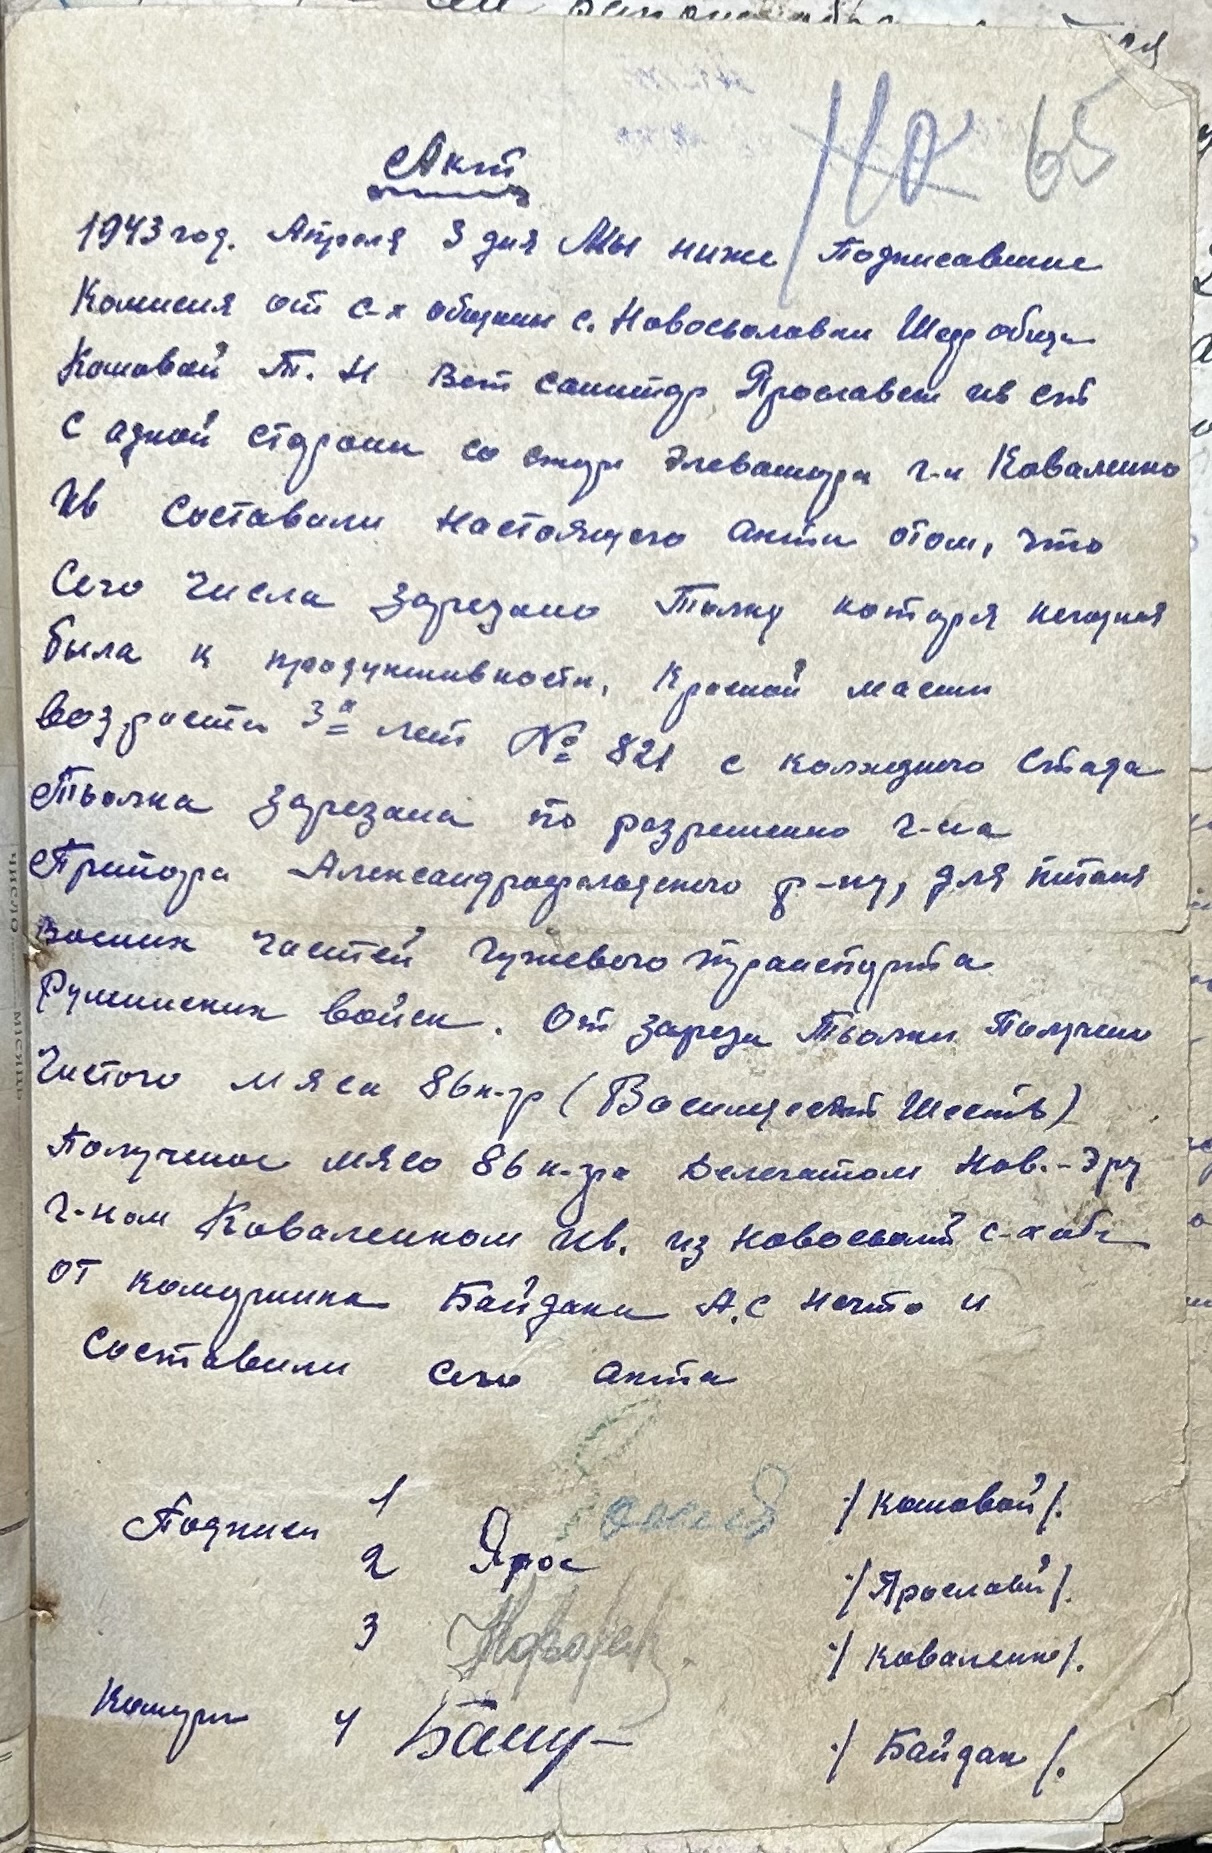 65
Акт
1943 год. Апреля 3 дня Мы ниже Подписавшие
Комисия от с-х общины с. Новосьоловки Шеф общи
Кошовой Т. Н Вет санитар Ярославец ив
с адной стороны со елеватора г-н Коваленко
Ив составили Настоящего акта отом, что
Сего Числа зарезано Толку которя негодная
была к продуктивности, Красной масти
возраста 3х лет № 821 с колхозного Стада
Тьолка зарезана по разрешению г-на
Притора Александрфельдского р-ну, для питаня
военых частей гужевого транспорта
Румынских войск. От зареза Тьолки Получено
Чистого мяса 86 к-гр (Восимдесят Шесть)
Полученое мясо 86 к-гра Делегатом Нов.-Эру
г-ном Коваленком Ив. из Новосьолой с-х общ
от коморника Байдака А.С Начто и
составили сего акта
Подписи 1 /Кошовой/.
2 Ярос /Ярославец/.
3 /Коваленко/.
Коморн 4 /Байдак/.